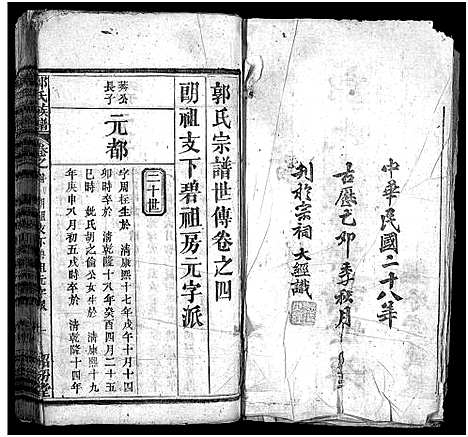 中華民國二十八年
古曆己卯季秋月
刋於宗祠 大經識
郭氏宗譜世傳卷之四
朙祖支下碧祖房元字派
三十世
公
長子
元都
字周柱生於 清康熙十七年戊午十月十四
卯時卒於 清乾隆十八年癸酉四月二十五
巳時 妣氏胡之倫公女生於 清康熙十九
年庚申八月初五戌時卒於 清乾隆十四年